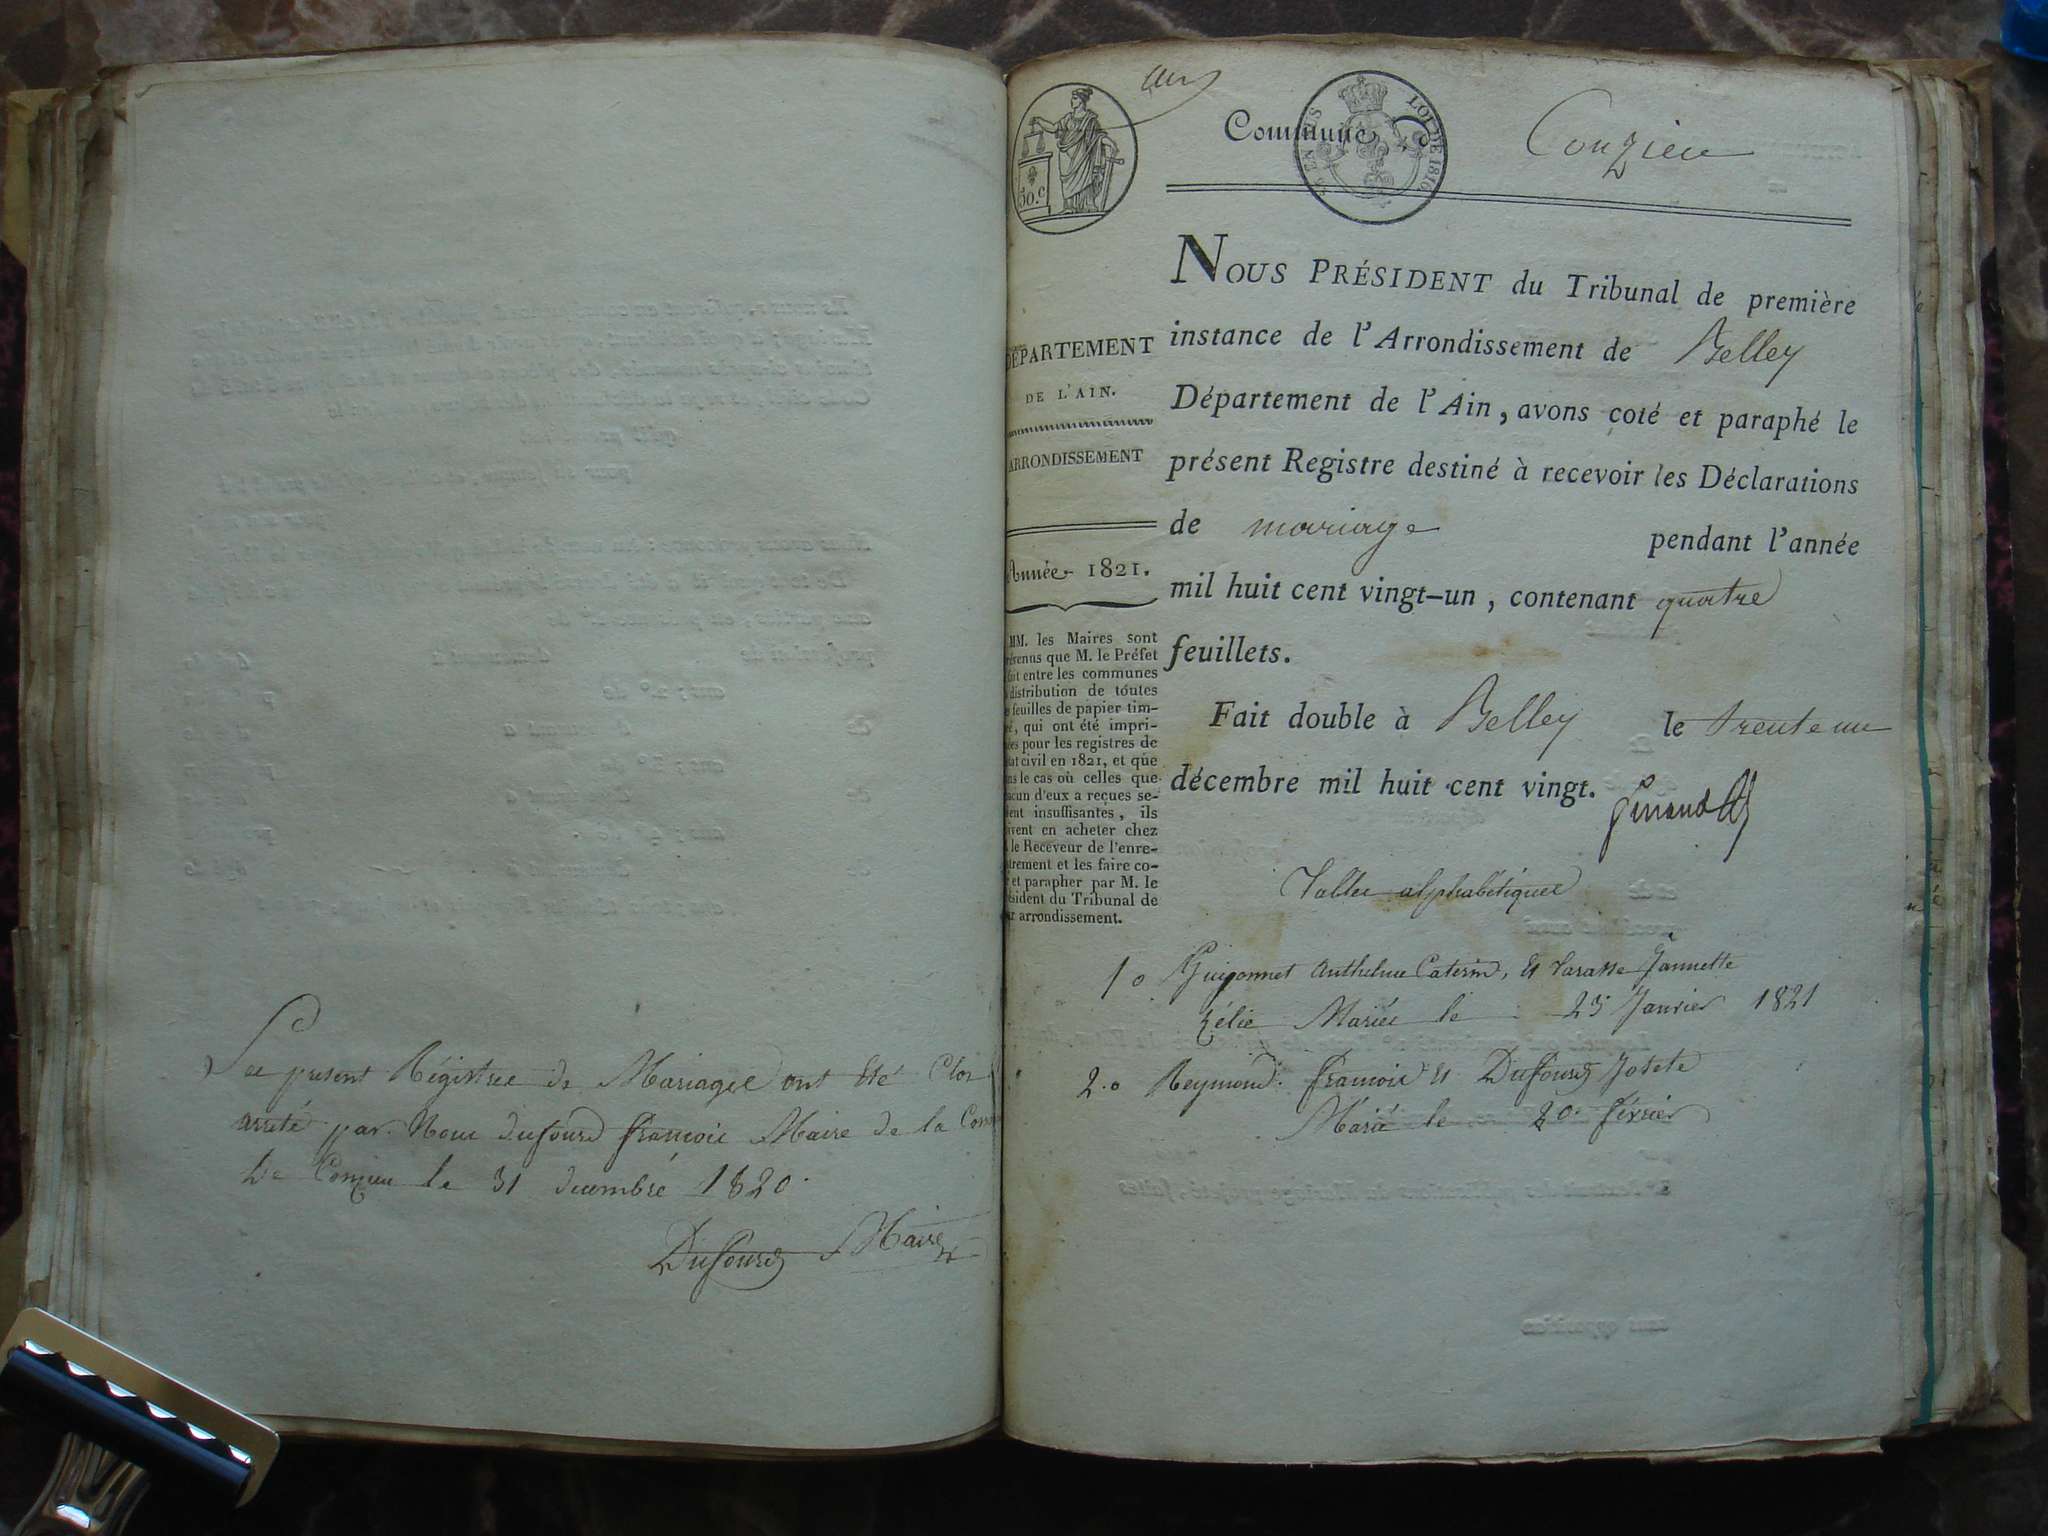 Les present Régistres de Mariages ont été Clos
arreté par Nous dufour françois Maire de la Com
De Conzieu le 31 decembre 1820.
Dufour Maire
50.c
LOI DE 1816
Commune
Conzieu
NOUS PRÉSIDENT du Tribunal de première
instance de l'Arrondissement de Belley
Département de l'Ain, avons coté et paraphé le
présent Registre destiné à recevoir les Déclarations
de mariage pendant l'année
mil huit cent vingt-un, contenant quatre
feuillets.
Fait double à Belley le trente un
décembre mil huit cent vingt.
DÉPARTEMENT
DE L'AIN.
ARRONDISSEMENT
Année 1821.
MM. les Maires sont
révenus que M. le Préfet
fait entre les communes
distribution de toutes
feuilles de papier tim-
é, qui ont été impri-
ées pour les registres de
tat civil en 1821, et que
ns le cas où celles que
acun d'eux a reçues se-
ient insuffisantes, ils
ivent en acheter chez
le Receveur de l'enre-
trement et les faire co-
et parapher par M. le
ésident du Tribunal de
r arrondissement.
Tables alphabétiques
1o Guigonnet Anthelme Caterin, et Tarasse Jannette
Zélie Mariés le 23 Janvier 1821
2.o Reymond françois et Dufour Josete
Marié le 20 février